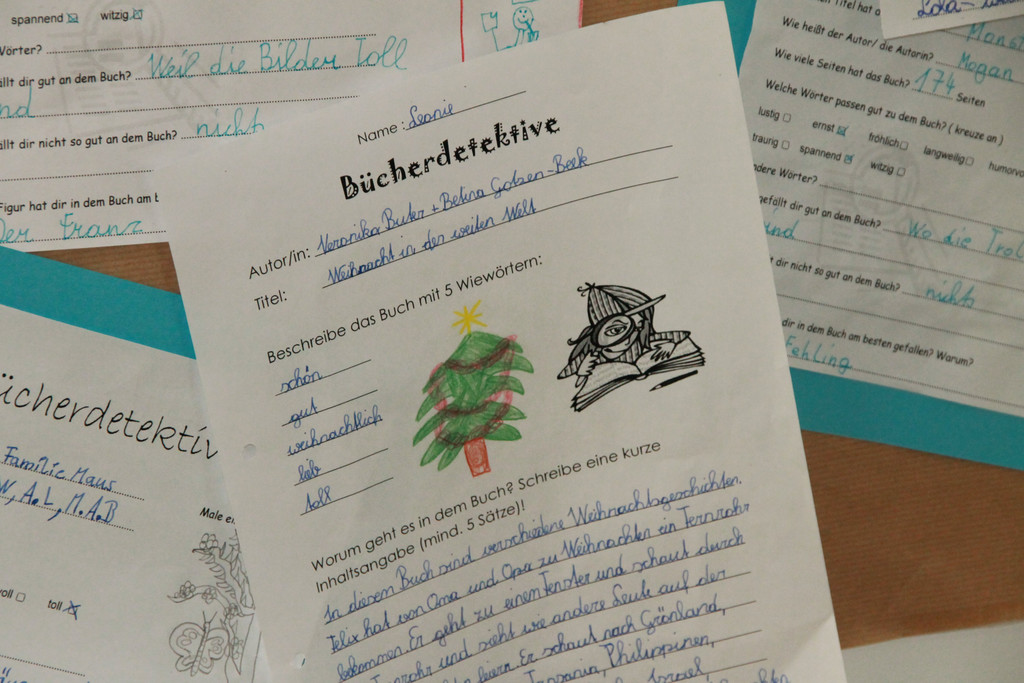 spannend witzig
Wörter?
ällt dir gut an dem Buch? Weil die Bilder Toll
nd
ällt dir nicht so gut an dem Buch? nicht
Figur hat dir in dem Buch am b
Der Franz
Name: Leonie
Bücherdetektive
Autor/in: Veronika
Titel: Weihnacht in der weiten Welt
Beschreibe das Buch mit 5 Wiewörtern:
schön
gut
weihnachtlich
lieb
toll
Worum geht es in dem Buch? Schreibe eine kurze
Inhaltsangabe (mind. 5 Sätze)!
In diesem Buch sind verschiedene Weihnachtsgeschichten.
Felix hat von Oma und Opa zu Weihnachten ein Fernrohr
bekommen. Er geht zu einem Fenster und schaut durch
Fernrohr und sieht wie andere Leute auf der
feiern. Er schaut nach Grönland,
Tansania, Philippinen,
Israel,
Titel hat
Wie heißt der Autor/ die Autorin? Mogan
Wie viele Seiten hat das Buch? 174 Seiten
Welche Wörter passen gut zu dem Buch? ( kreuze an )
lustig ernst fröhlich langweilig humorvo
traurig spannend witzig
dere Wörter?
gefällt dir gut an dem Buch? Wo die Trol
ind
dir nicht so gut an dem Buch? nichts
dir in dem Buch am besten gefallen? Warum?
Fehling
ücherdetektiv
Familie Maus
W, A.L, M.A.B
Male ei
oll toll